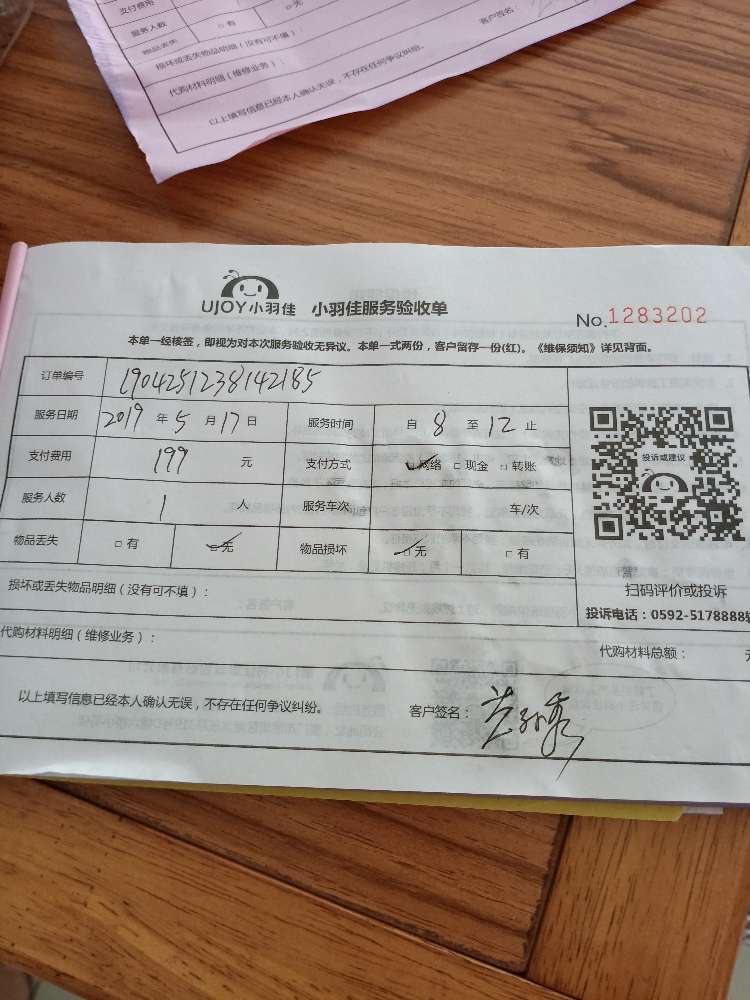 支付费用
服务人数
□有
□无
物品丢失
损坏或丢失物品明细（没有可不填）：
客户签名：
代购材料明细（维修业务）：
以上填写信息已经本人确认无误，不存在任何争议纠纷。
UJOY小羽佳 小羽佳服务验收单
No.1283202
本单一经核签，即视为对本次服务验收无异议。本单一式两份，客户留存一份(红)。《维保须知》详见背面。
订单编号 1904251238142185
服务日期 2019 年 5 月 17 日 服务时间 自 8 至 12 止
支付费用 199 元 支付方式 ✓□网络 □现金 □转账
投诉或建议
服务人数 1 人 服务车次 车/次
物品丢失 □有 ✓□无 物品损坏 ✓□无 □有
损坏或丢失物品明细（没有可不填）：
扫码评价或投诉
投诉电话：0592-5178888
代购材料明细（维修业务）：
代购材料总额：
以上填写信息已经本人确认无误，不存在任何争议纠纷。 客户签名：